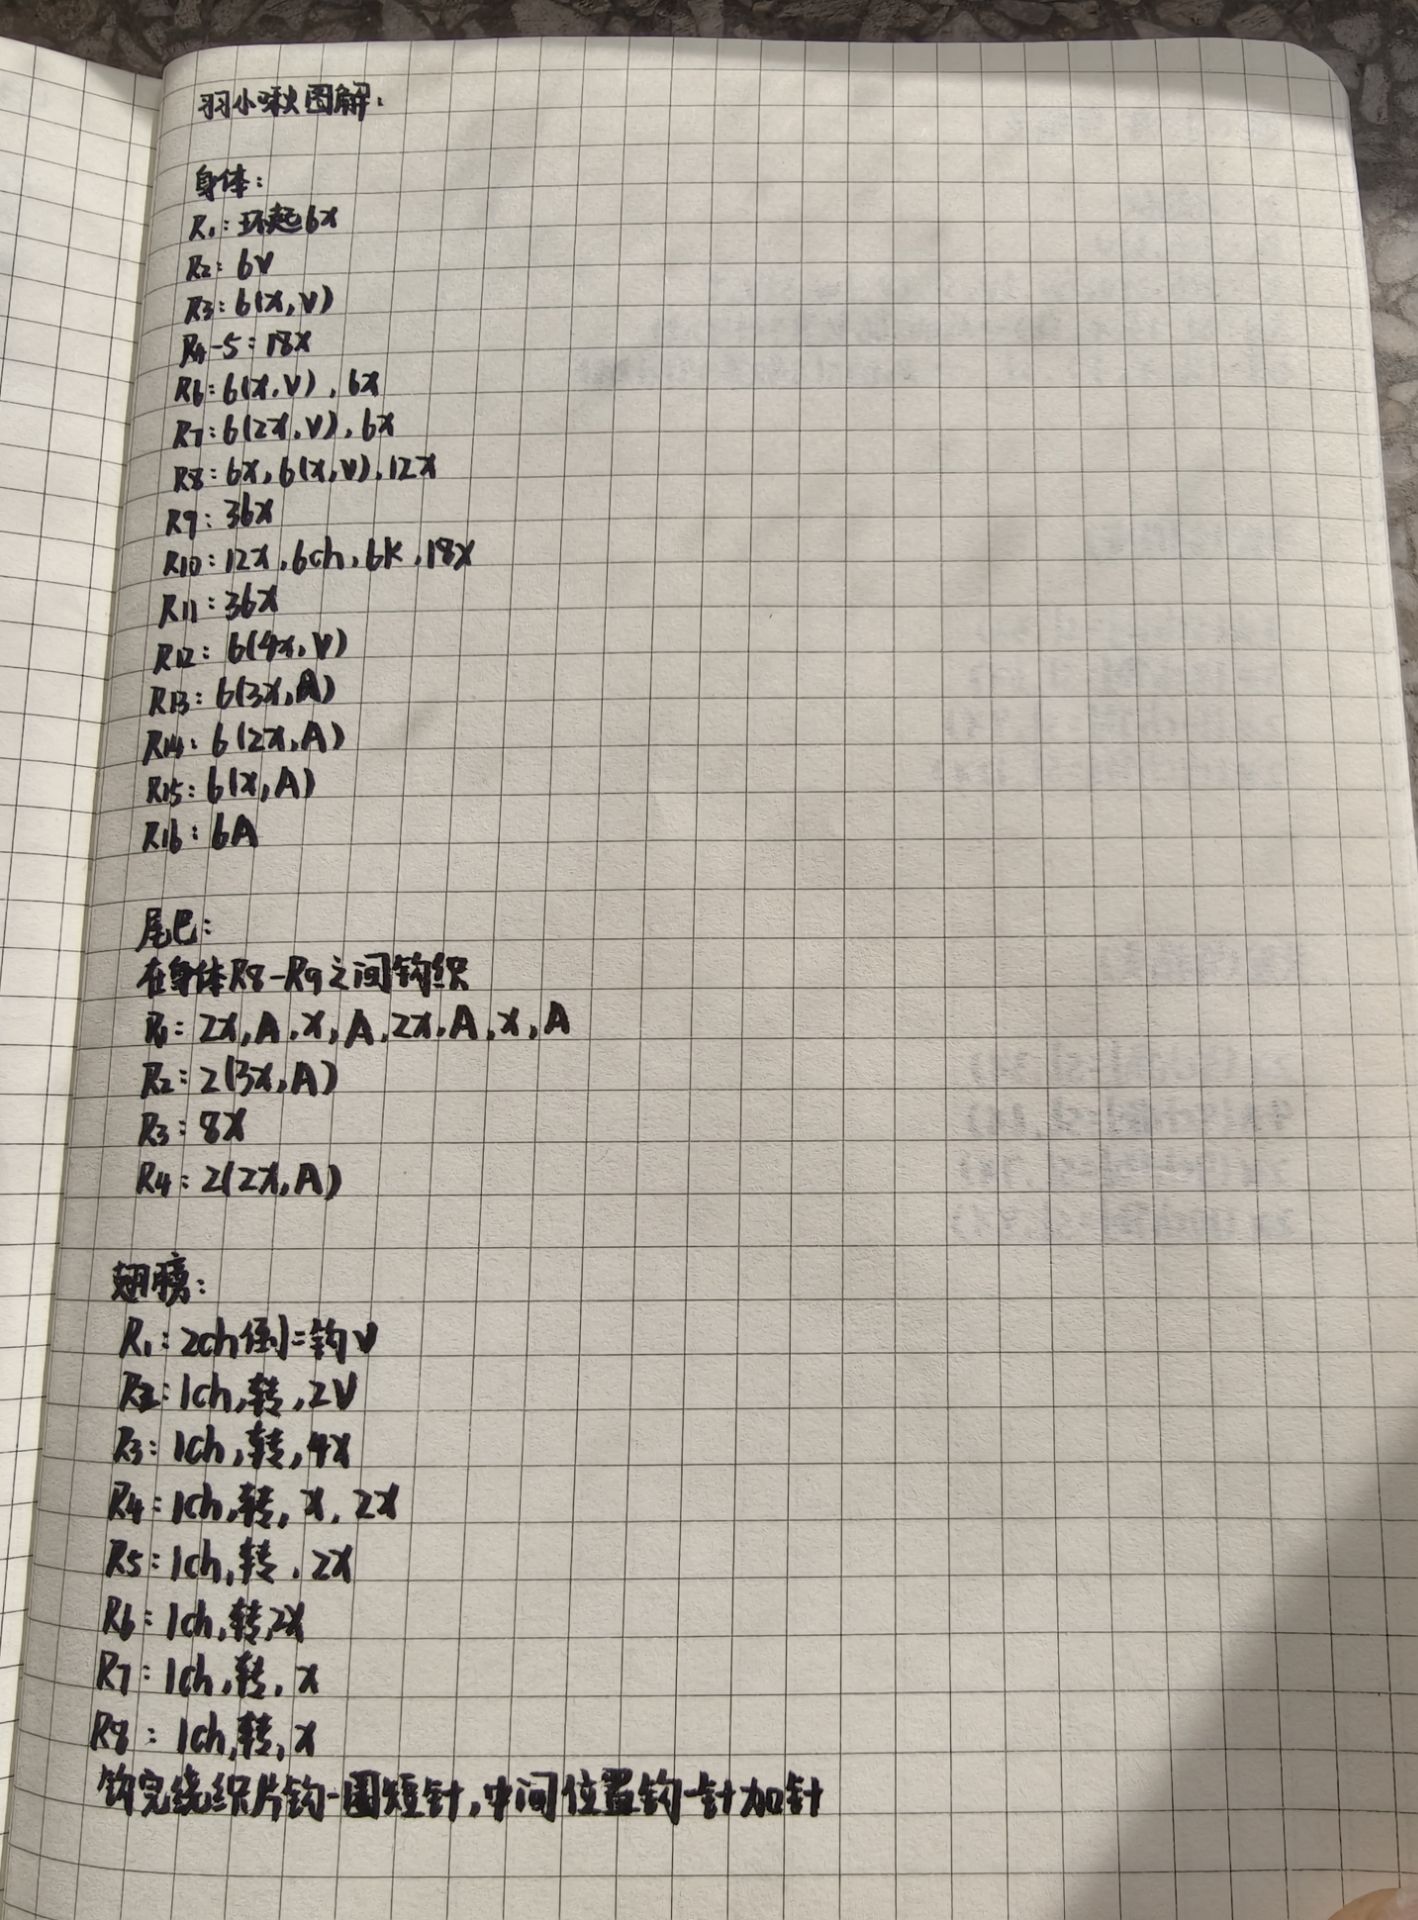 羽小啾图解:
身体:
R1:环起6x
R2:6v
R3:6(x,v)
R4-5:18x
R6:6(x,v),6x
R7:6(2x,v),6x
R8:6x,6(x,v),12x
R9:36x
R10:12x,6ch,6k,18x
R11:36x
R12:6(4x,v)
R13:6(3x,A)
R14:6(2x,A)
R15:6(x,A)
R16:6A
尾巴:
在身体R8-R9之间钩织
R1:2x,A,x,A,2x,A,x,A
R2:2(3x,A)
R3:8x
R4:2(2x,A)
翅膀:
R1:2ch倒二钩v
R2:1ch,转,2v
R3:1ch,转,4x
R4:1ch,转,x,2x
R5:1ch,转,2x
R6:1ch,转,2x
R7:1ch,转,x
R8:1ch,转,x
钩完绕织片钩一圈短针,中间位置钩一针加针